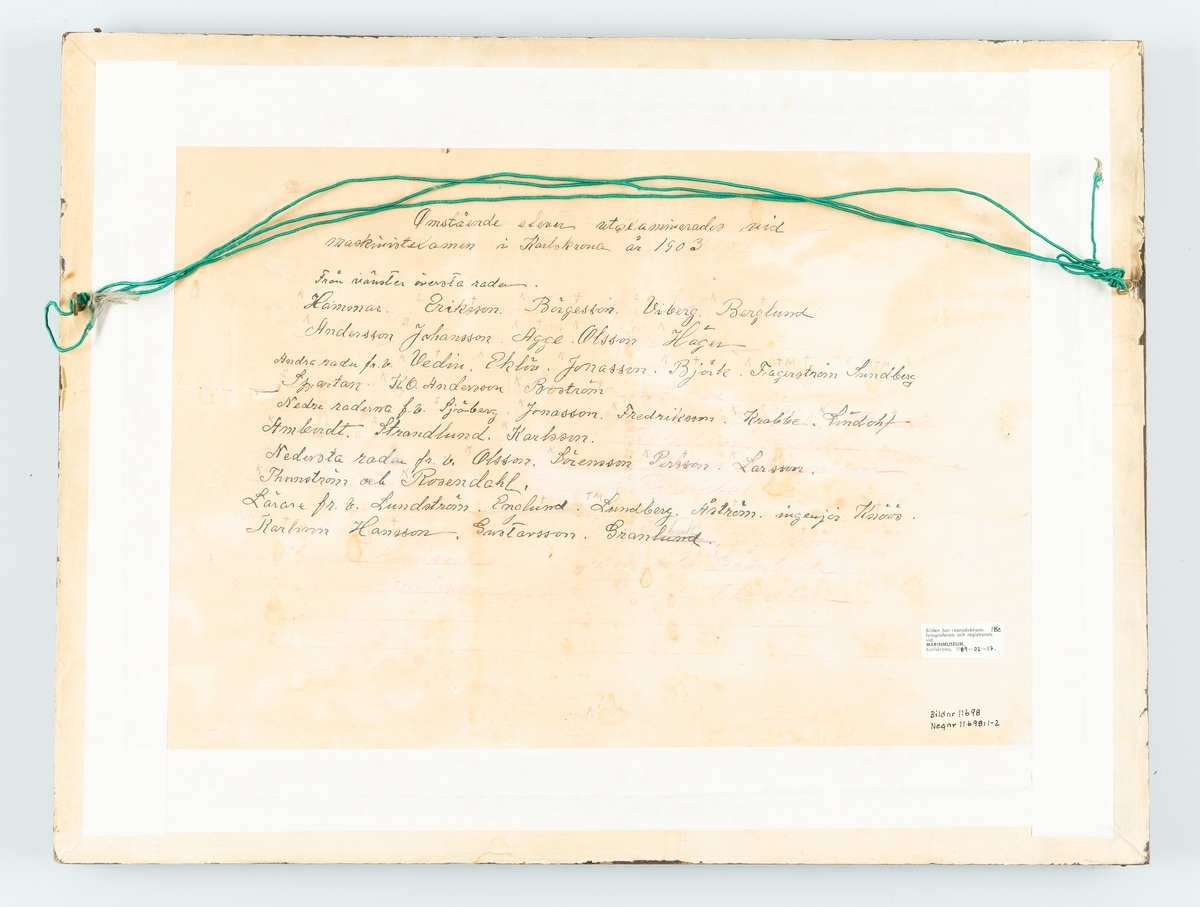 Omstående elever utexaminerades vid
maskinistexamen i Karlskrona år 1903
Från vänster översta raden.
Hammar. Eriksson. Börgesson. Viberg. Berglund
Andersson Johansson. Agge. Olsson Häger
Andra raden fr. v. Vedin. Eklöv. Jonasson. Björk. Fagerström Sundberg
Spartan K.O. Andersson Boström
Nedre raderna f. v. Sjöberg. Jonasson. Fredriksson. Krabbe. Lindohf
Ambordt. Strandlund. Karlsson.
Nedersta raden fr. v. Olsson. Sörensson Persson. Larsson.
Thunström och Rosendahl.
Lärare fr. v. Lundström. Englund. Lundberg. Åström. ingenjör Knöös.
Karlsson Hansson. Gustavsson. Granlund
Bilden har reproduktions- 18c
fotograferats och registrerats
vid
MARINMUSEUM,
Karlskrona, 1989-02-17.
Bildnr 11698
Negnr 11698:1-2